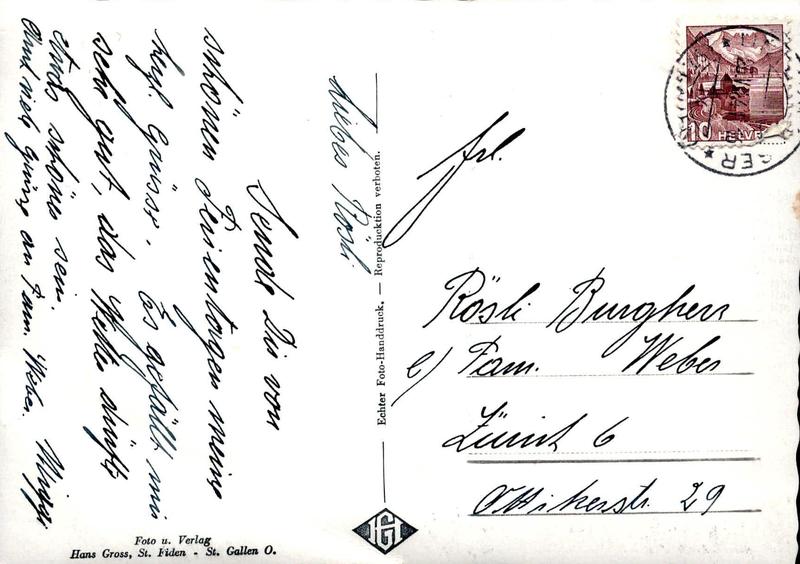 Liebes Rösli
Sende Dir von
schönen Ferientagen meine
herzl. Grüsse. Es gefällt mir
sehr gut, das Wetter dürfte
etwas schöner sein.
Auch viele Grüsse an Fam. Weber.
Echter Foto-Handdruck. — Reproduktion verboten.
Frl.
Rösli Burgherr
c/ Fam. Weber
Zürich 6
Ottikerstr. 29
10 HELVETIA
Foto u. Verlag
Hans Gross, St. Fiden - St. Gallen O.
HG